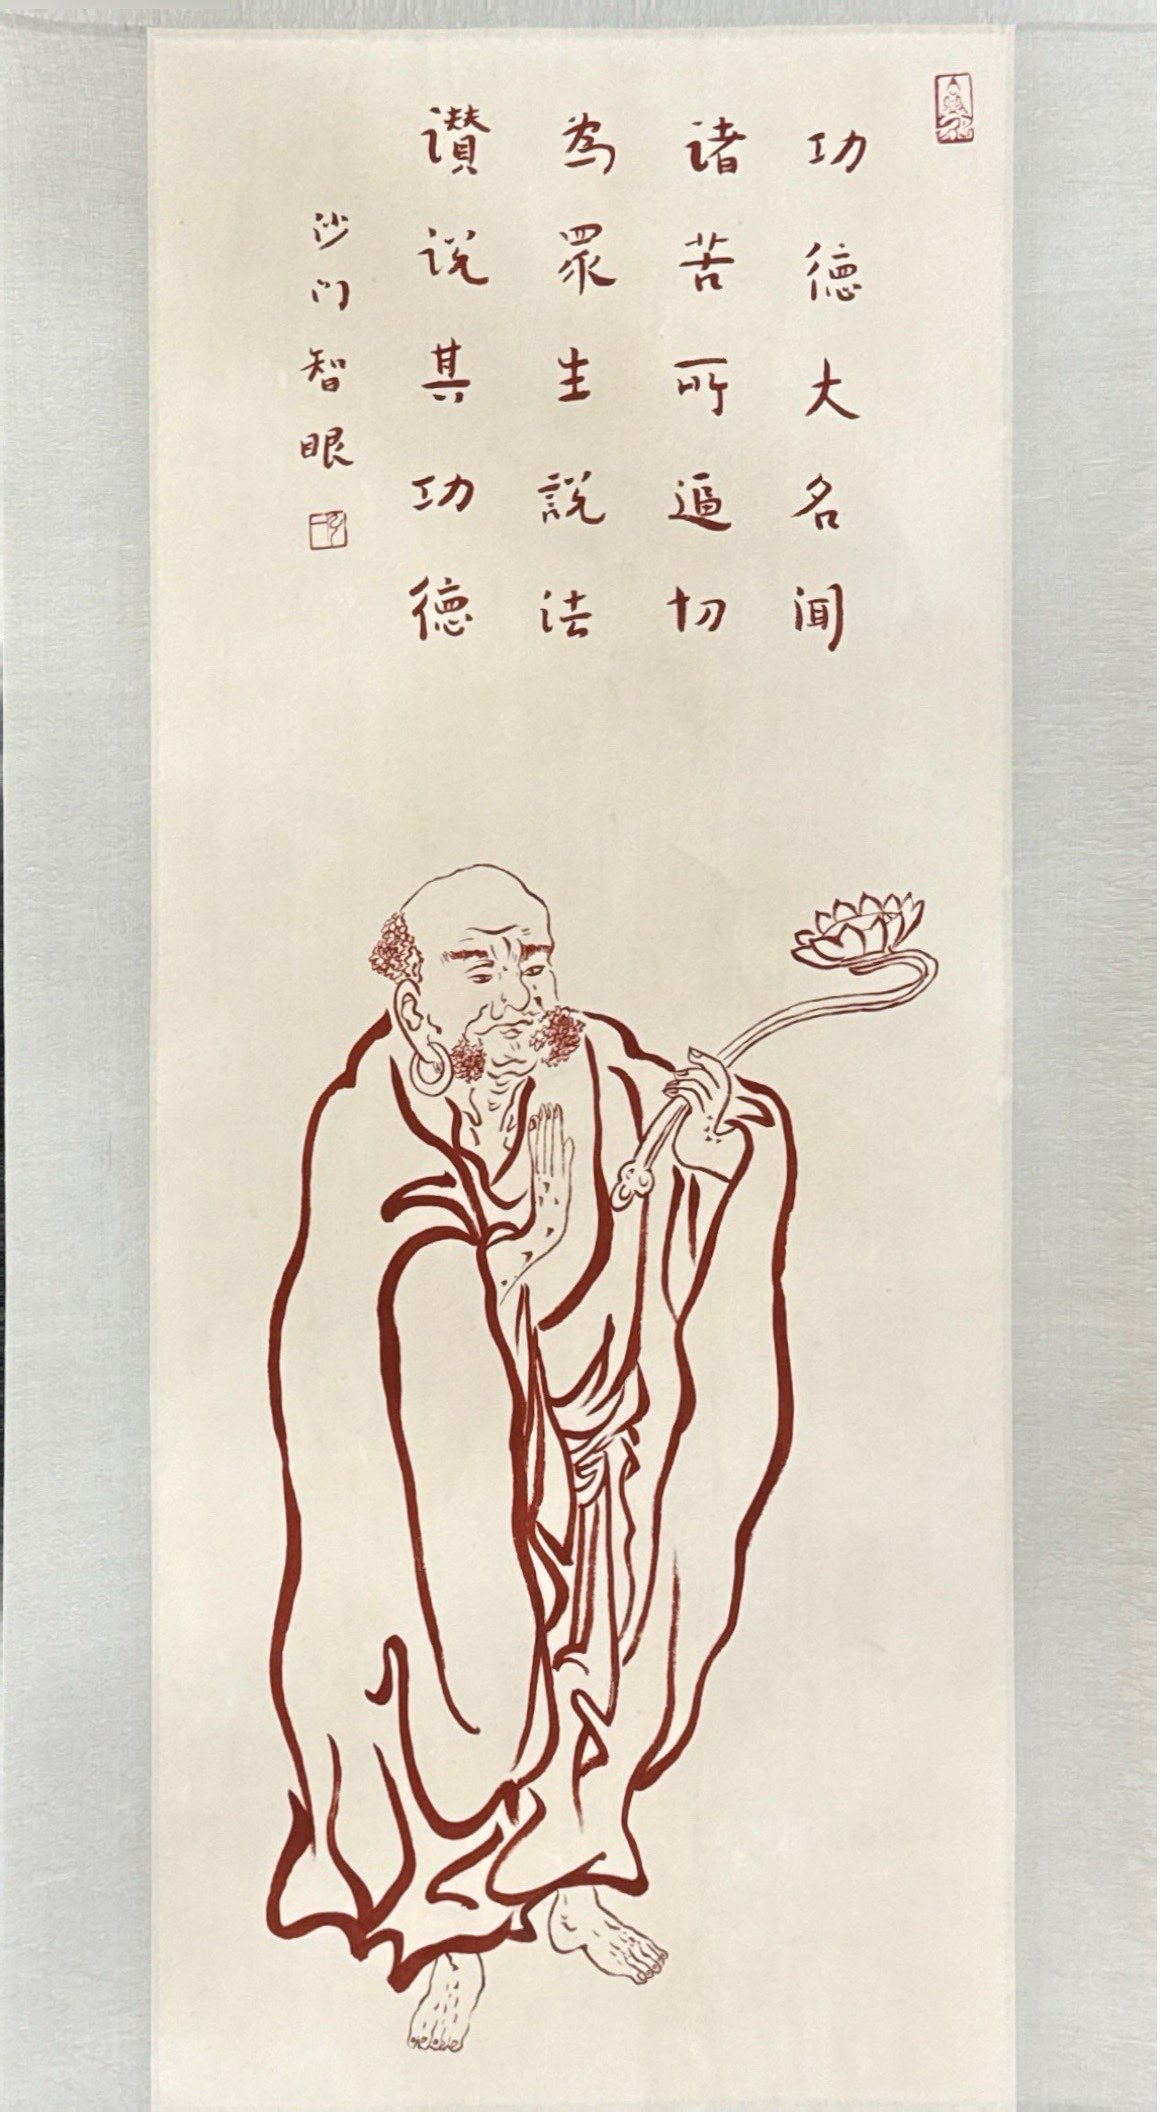 功德大名闻
诸苦所逼切
為眾生説法
讃说其功德
沙门智眼